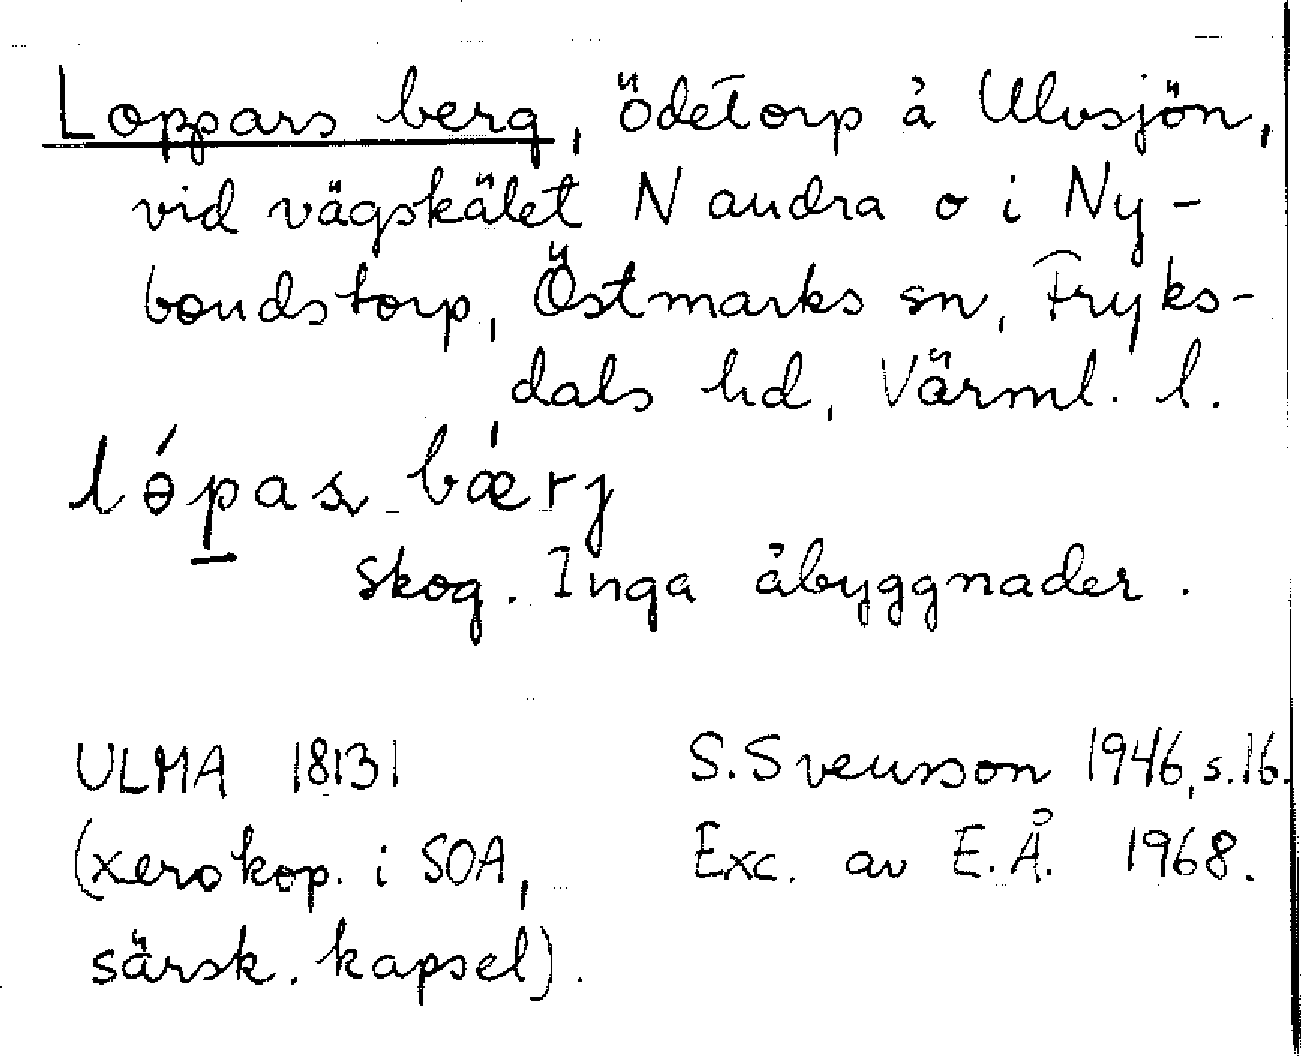 Loppars berg, ödetorp å Ulvsjön,
vid vägskälet N andra o i Ny-
bondstorp, Östmarks sn, Fryks-
dals hd, Värml. l.
lɵ́pas_bǽrj
skog. Inga åbyggnader.
ULMA 18131
(xerokop. i SOA,
särsk. kapsel).
S. Svensson 1946, s. 16.
Exc. av E. Å. 1968.